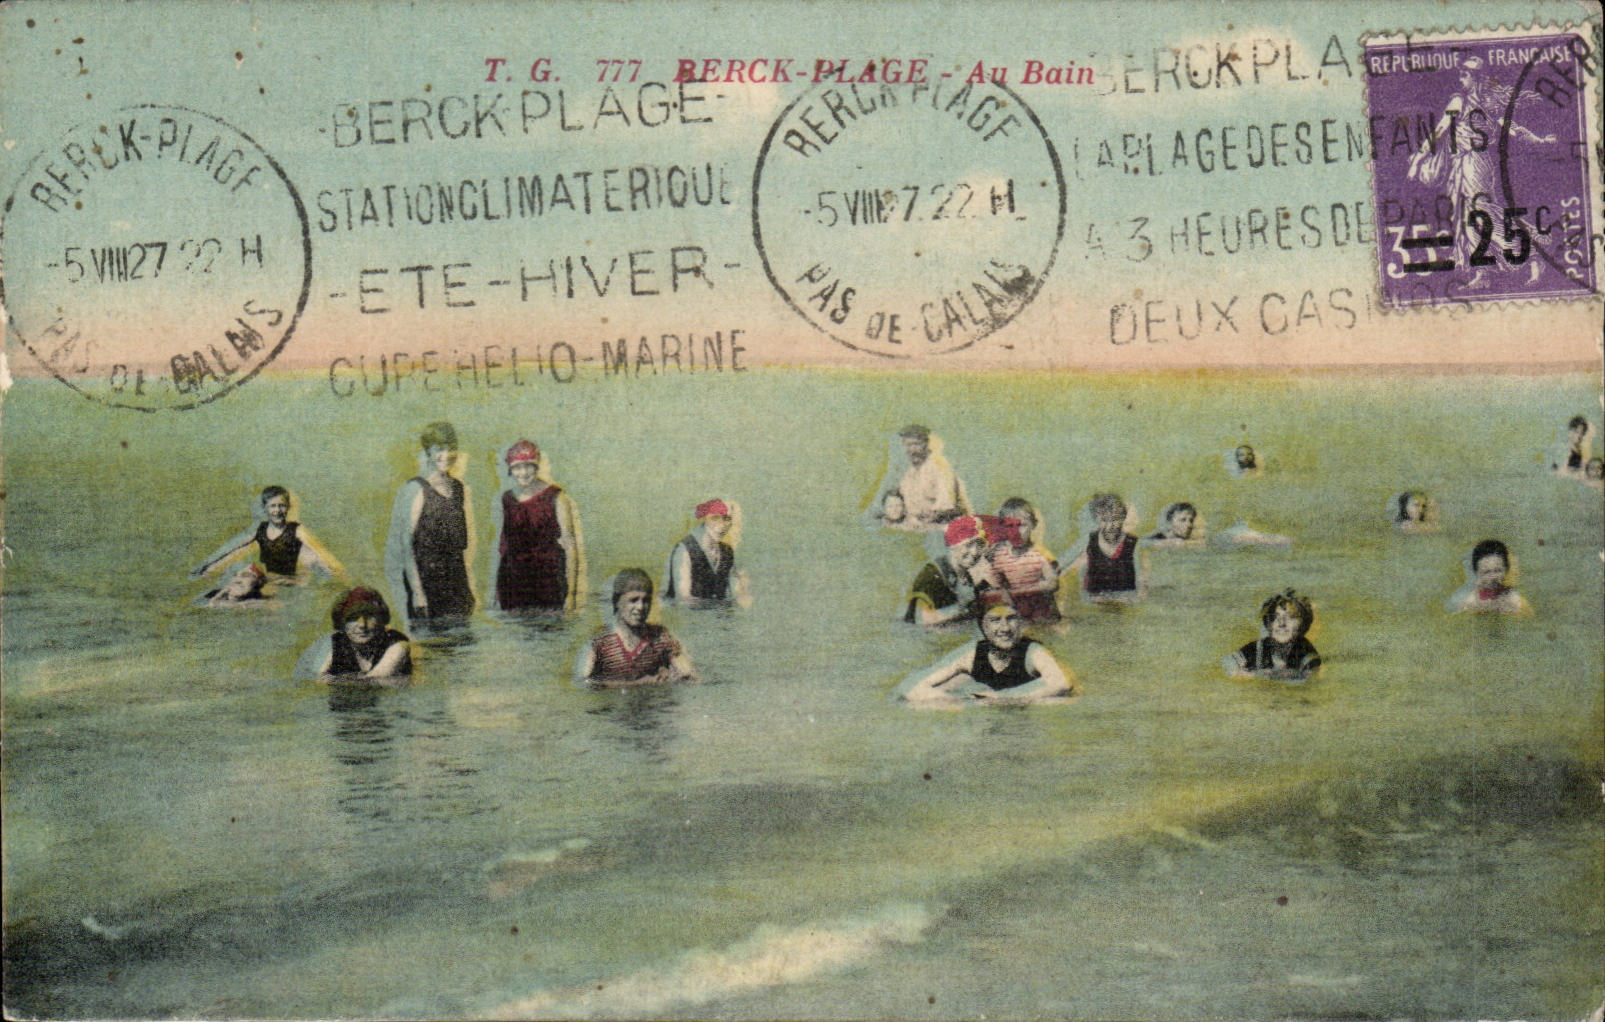 T. G. 777 BERCK-PLAGE - Au Bain
BERCK-PLAGE
-5 VIII 27 22 H
PAS DE-CALAIS
-BERCK PLAGE-
STATION CLIMATERIQUE
-ETE-HIVER-
CURE HELIO-MARINE
BERCK-PLAGE
-5 VIII 27 22 H
PAS DE-CALAIS
BERCK PLAGE
LA PLAGE DES ENFANTS
A 3 HEURES DE PARIS
DEUX CASINOS
REPUBLIQUE FRANÇAISE
POSTES
35c
=25c